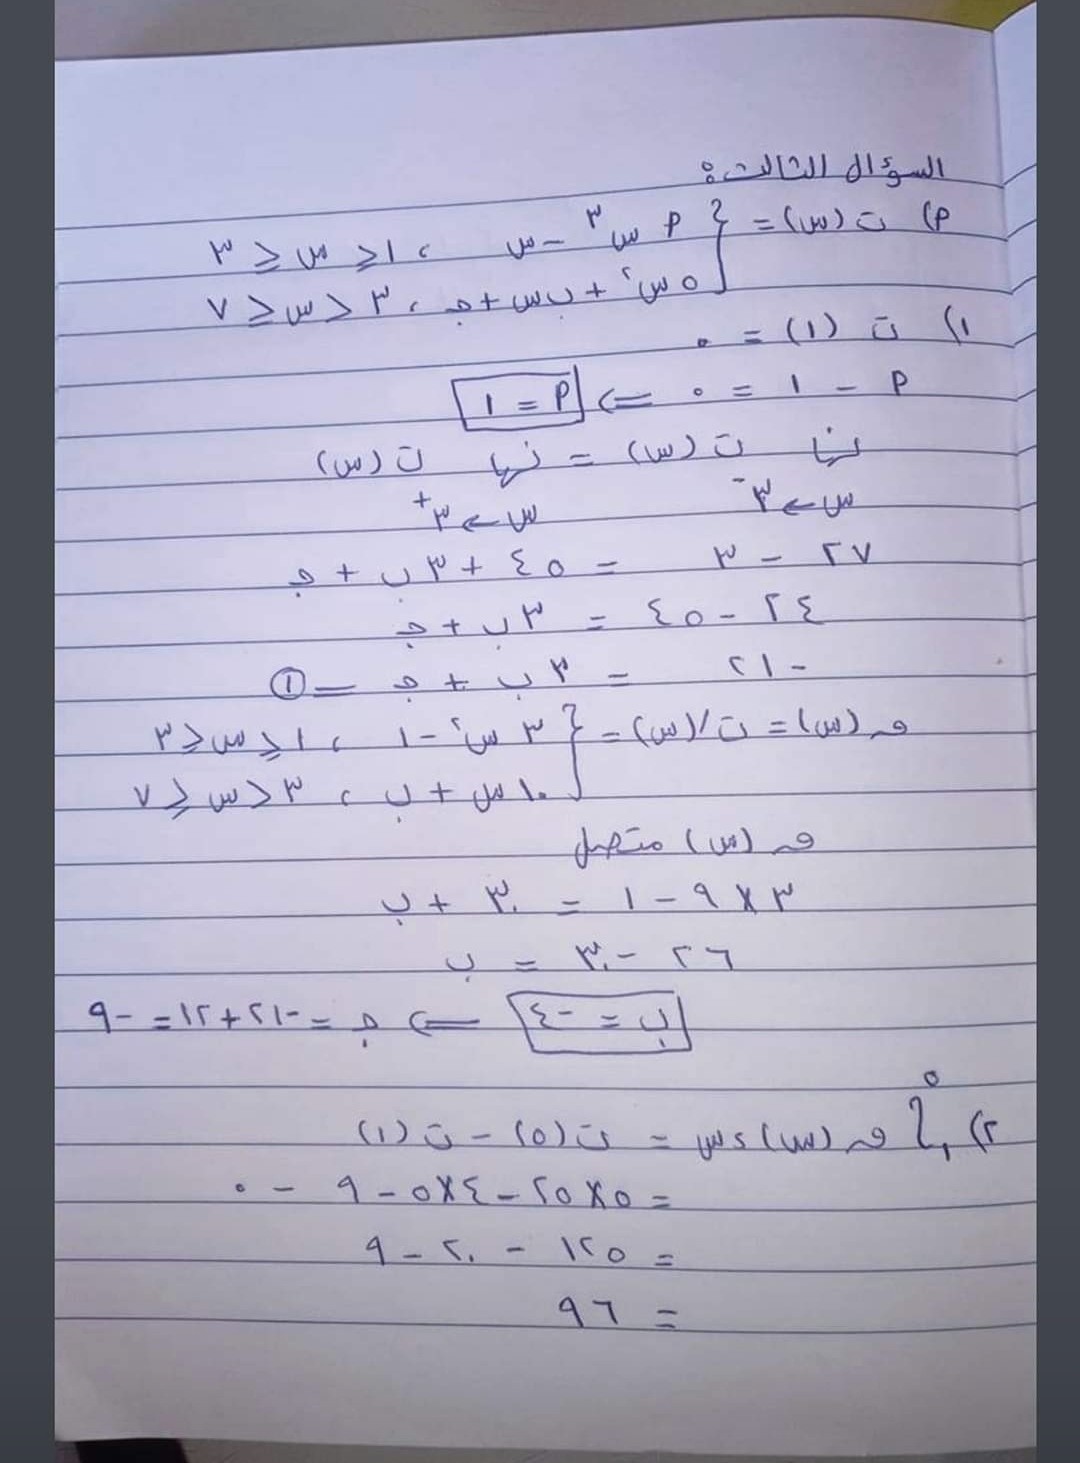 السؤال الثالث:
م) ت (س) = { م س٣ - س ، ١ ≤ س ≤ ٣
٥س٢ + ب س + جـ ، ٣ < س ≤ ٧
١) ت (١) = ٠
م - ١ = ٠ => م = ١
نها ت (س) = نها ت (س)
س ← ٣- س ← ٣+
٢٧ - ٣ = ٤٥ + ٣ ب + جـ
٢٤ - ٤٥ = ٣ ب + جـ
-٢١ = ٣ ب + جـ — ①
هـ (س) = ت/(س) = { ٣ س٢ - ١ ، ١ ≤ س ≤ ٣
١٠ س + ب ، ٣ < س ≤ ٧
هـ (س) متصل
٣ × ٩ - ١ = ٣٠ + ب
٢٦ - ٣٠ = ب
ب = -٤ => جـ = -٢١ + ١٢ = -٩
٢) ∫١^٥ هـ (س) دس = ت (٥) - ت (١)
= ٥ × ٢٥ - ٤ × ٥ - ٩ - ٠
= ١٢٥ - ٢٠ - ٩
= ٩٦